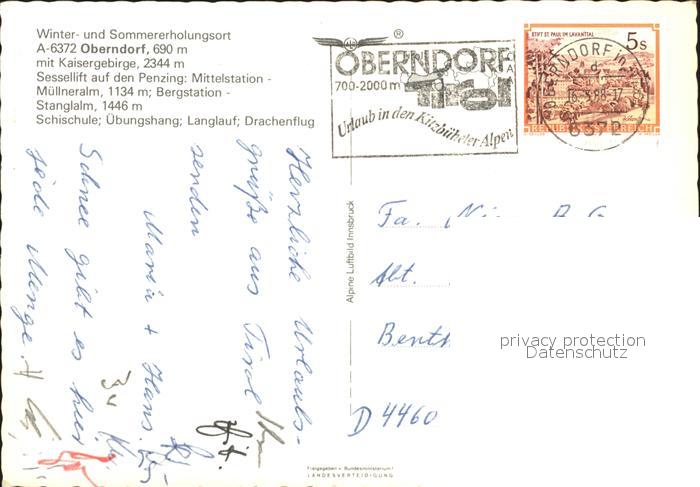 Winter- und Sommererholungsort
A-6372 Oberndorf, 690 m
mit Kaisergebirge, 2344 m
Sessellift auf den Penzing: Mittelstation -
Müllneralm, 1134 m; Bergstation -
Stanglalm, 1446 m
Schischule; Übungshang; Langlauf; Drachenflug
®
OBERNDORF
700-2000 m
Urlaub in den Kitzbüheler Alpen
STIFT ST. PAUL IM LAVANTTAL
5 s
REPUBLIK ÖSTERREICH
OBERNDORF in
6372
Herzliche Urlaubs-
grüße aus Tirol
senden
Maria + Hans.
Schnee gibt es hier
jede Menge.
Alpine Luftbild Innsbruck
Fa.
Abt.
Benth
D 4460
privacy protection
Datenschutz
Freigegeben v. Bundesministerium f.
LANDESVERTEIDIGUNG